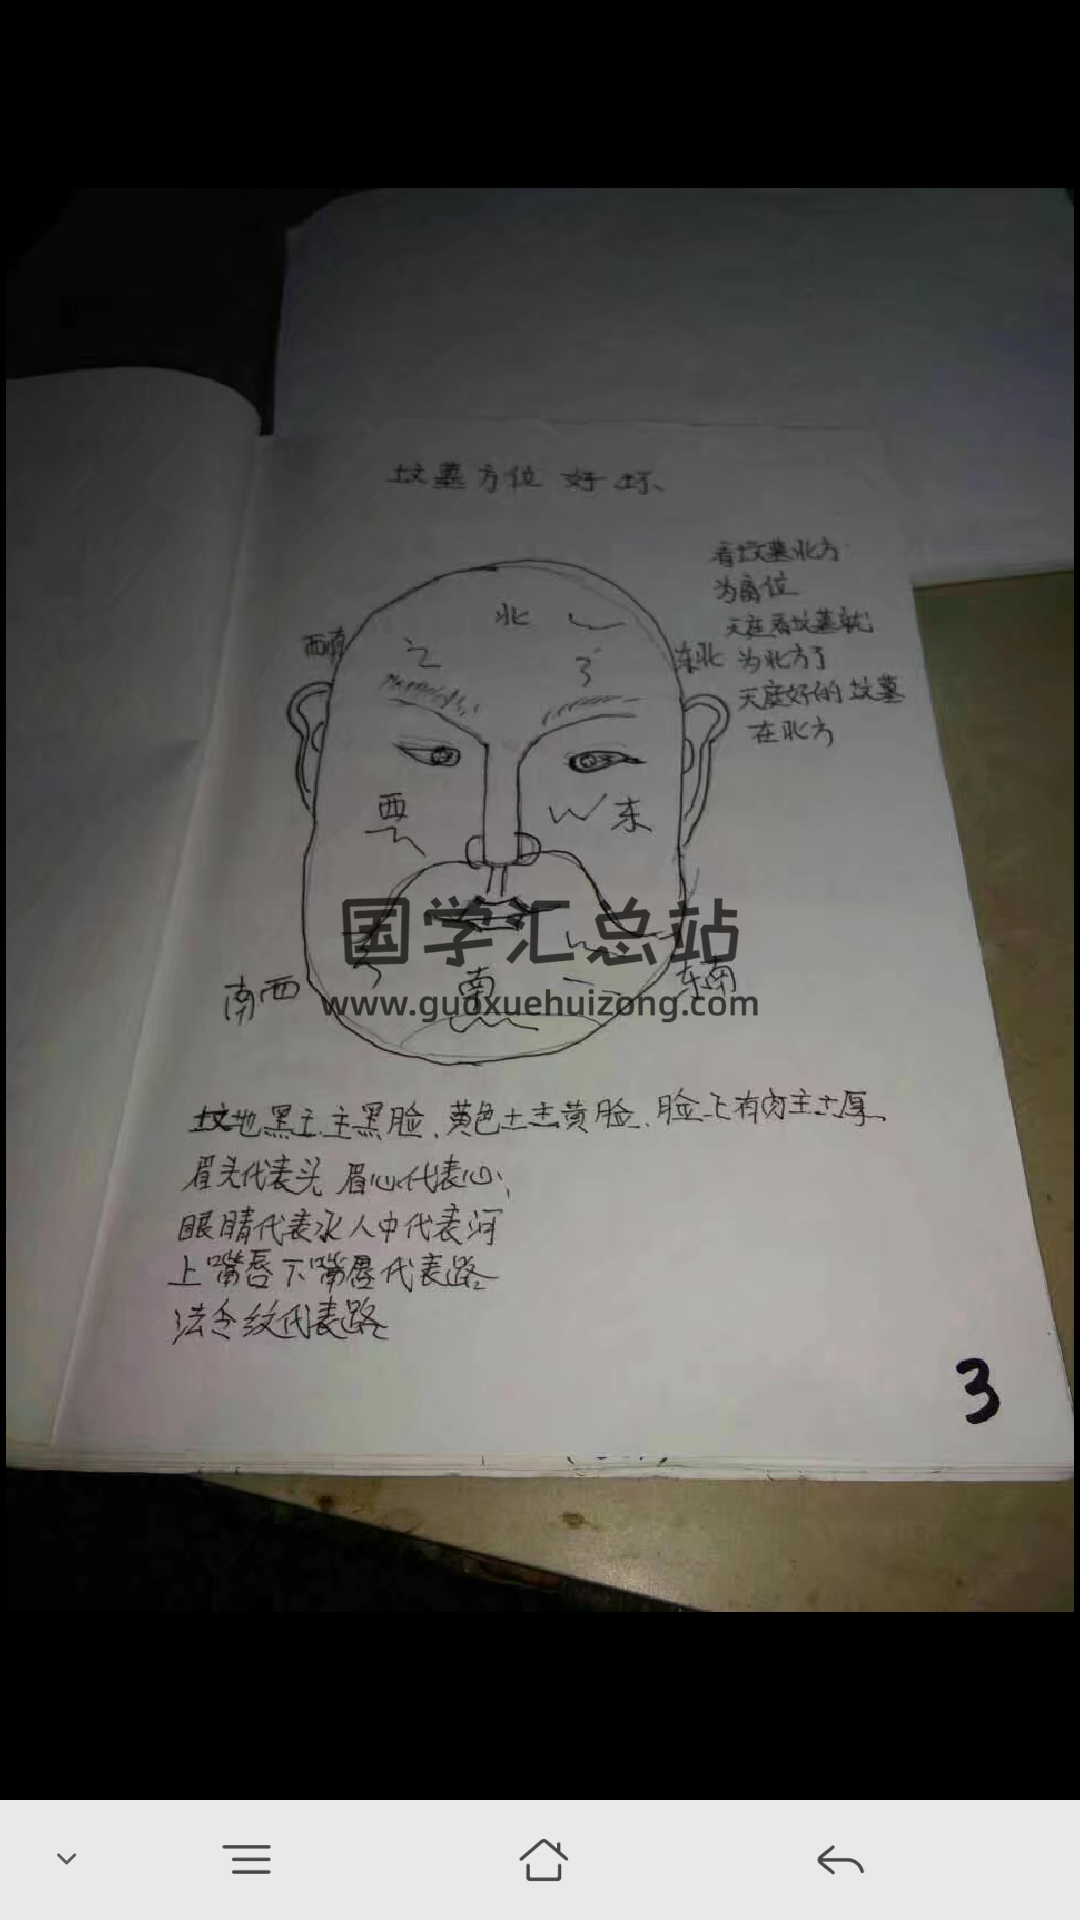 坟墓方位 好坏
看坟墓北方
为高位
天庭看坟墓就
为北方了
天庭好的坟墓
在北方
北
东北
西
东
国学汇总站
www.guoxuehuizong.com
南西
南
东南
坟地黑土主黑脸、黄色土主黄脸、脸上有肉主土厚
眉头代表头 眉心代表心、
眼睛代表水人中代表河
上嘴唇下嘴唇代表路
法令纹代表路
3